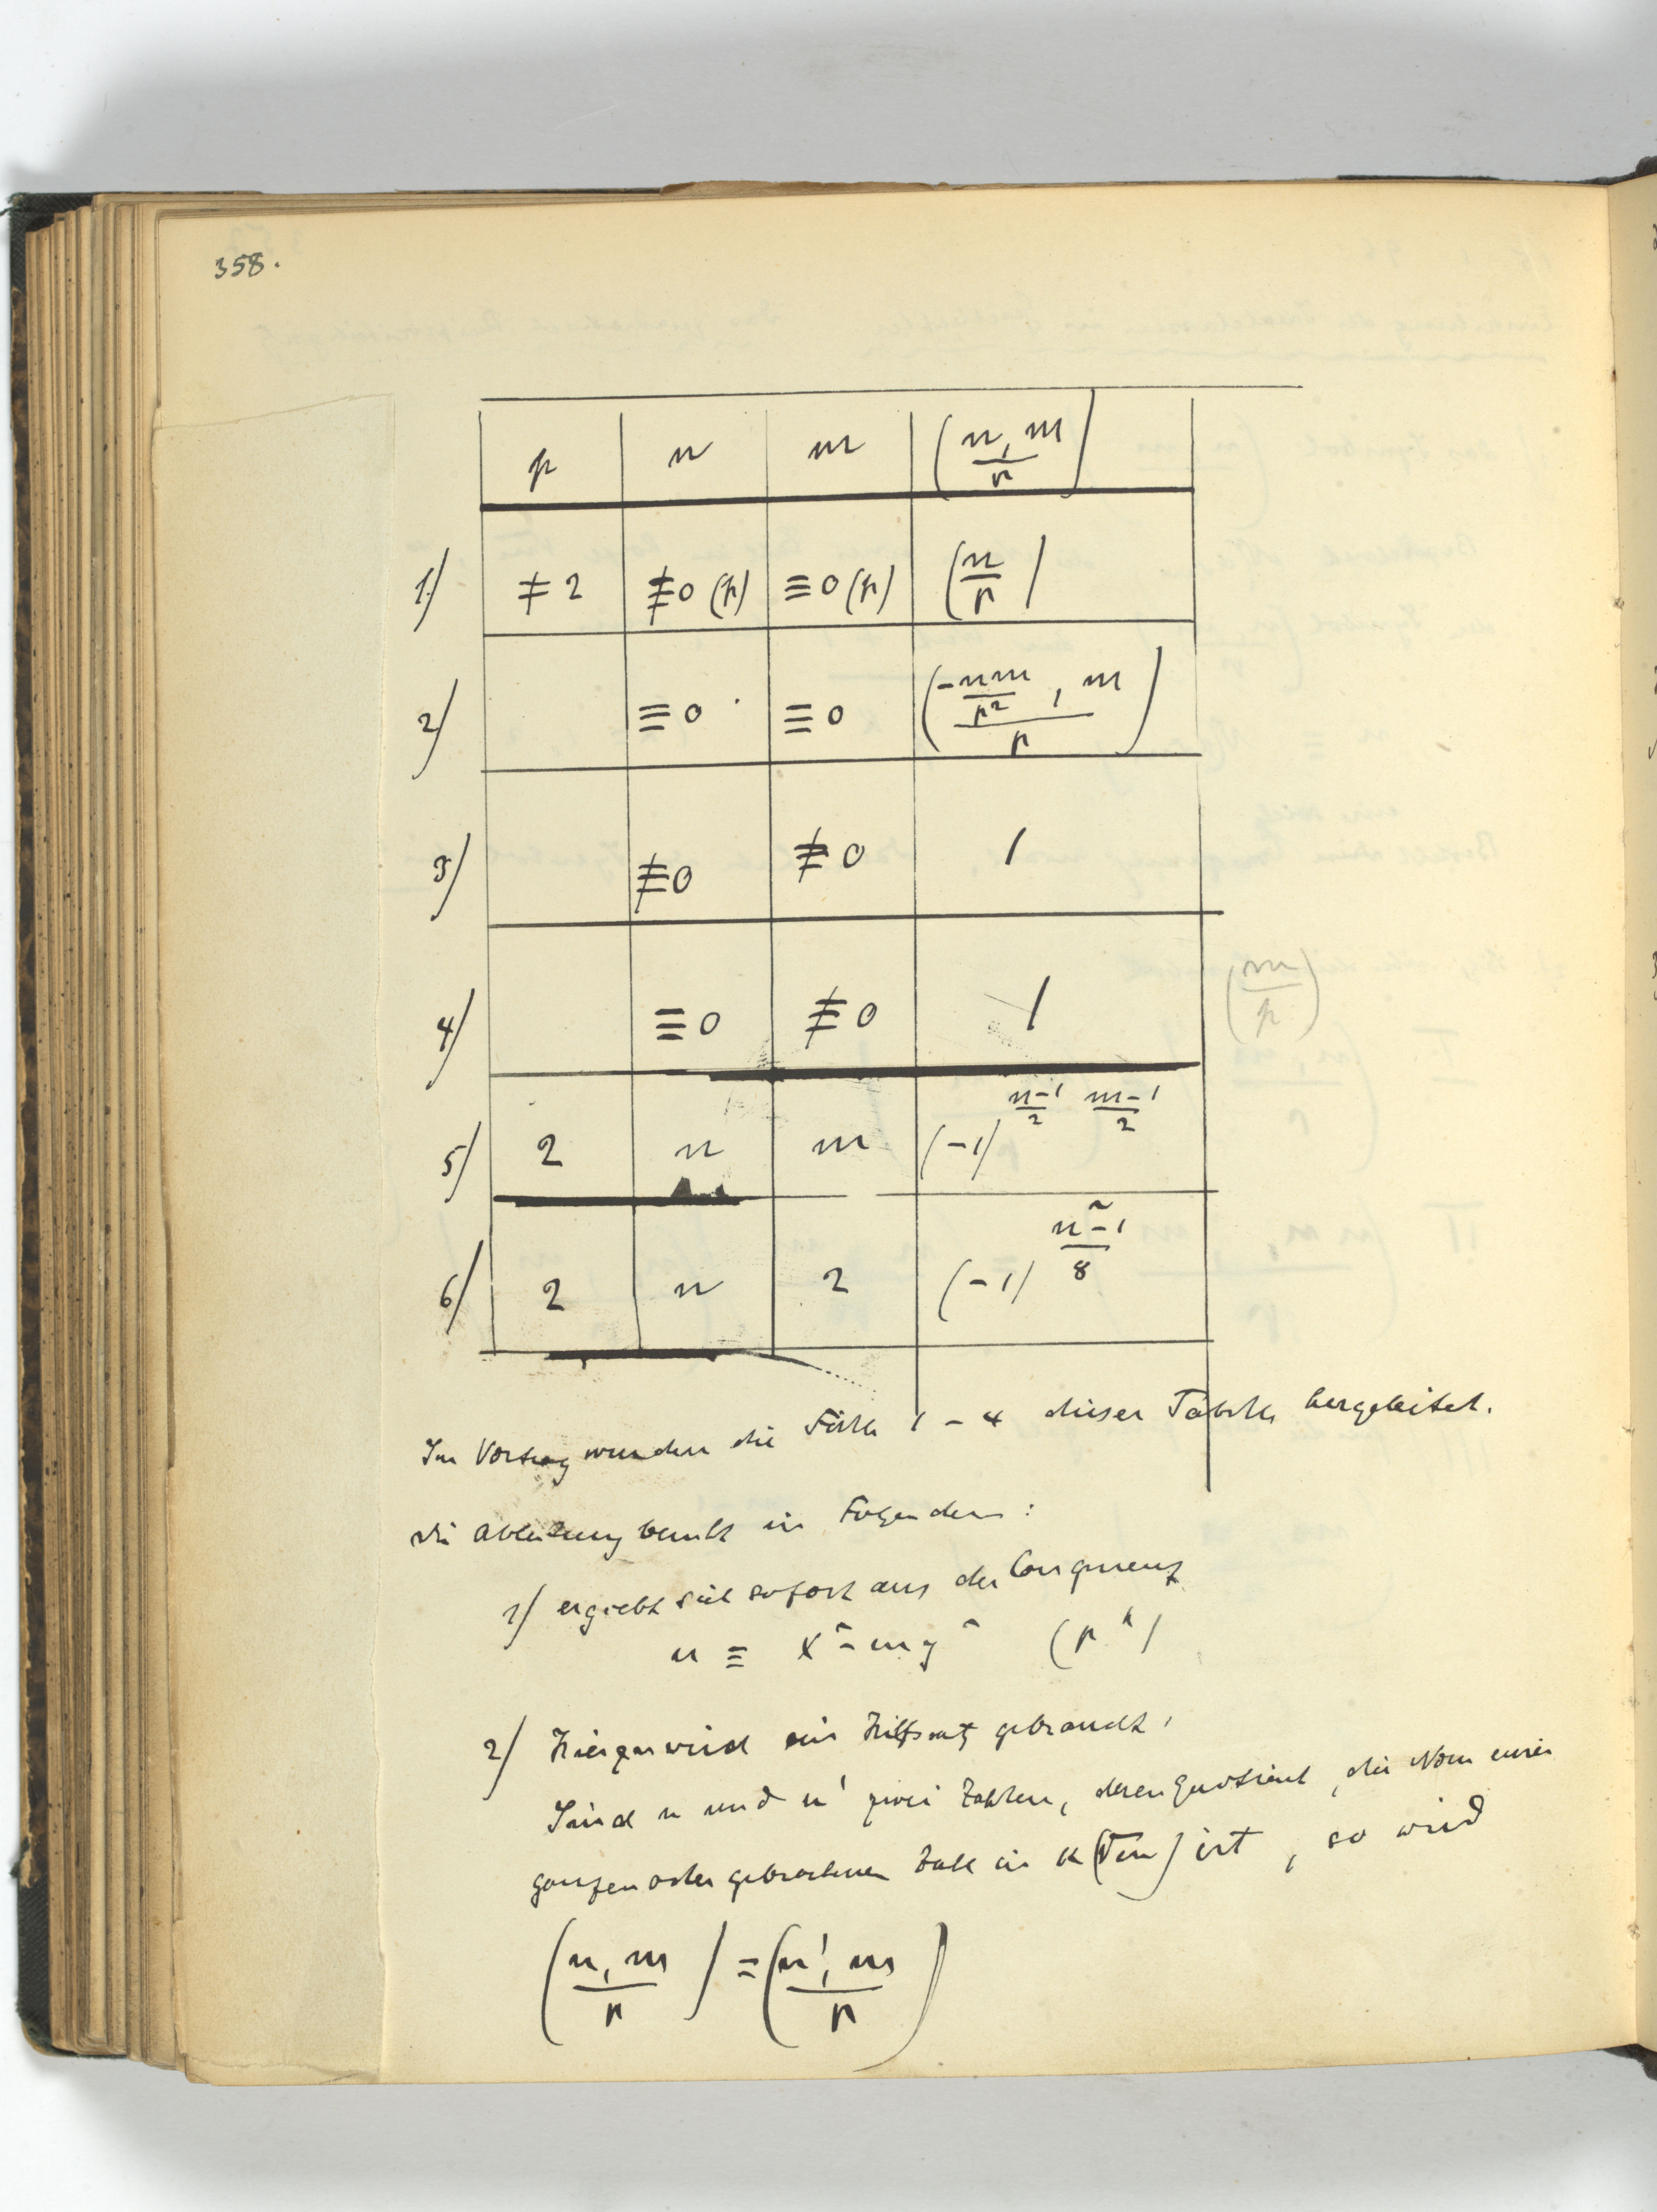 358.
p n m (n, m / p)
1) ≠ 2 ≢ 0 (p) ≡ 0 (p) (n/p)
2) ≡ 0 ≡ 0 (-nm/p², m / p)
3) ≢ 0 ≢ 0 1
4) ≡ 0 ≢ 0 1 (m/p)
5) 2 n m (-1)^{n-1/2 m-1/2}
6) 2 n 2 (-1)^{n²-1/8}
Im Vortrag wurden die Fälle 1 - 4 dieser Tabelle hergeleitet.
Die Ableitung beruht in Folgendem:
1) ergiebt sich sofort aus der Congruenz
n ≡ x² - my² (p^k)
2) Hierzu wird ein Hilfssatz gebraucht,
Sind n und n' zwei Zahlen, deren Quotient, die Norm einer
ganzen oder gebrochenen Zahl in k(√m) ist, so wird
(n, m / p) = (n', m / p)